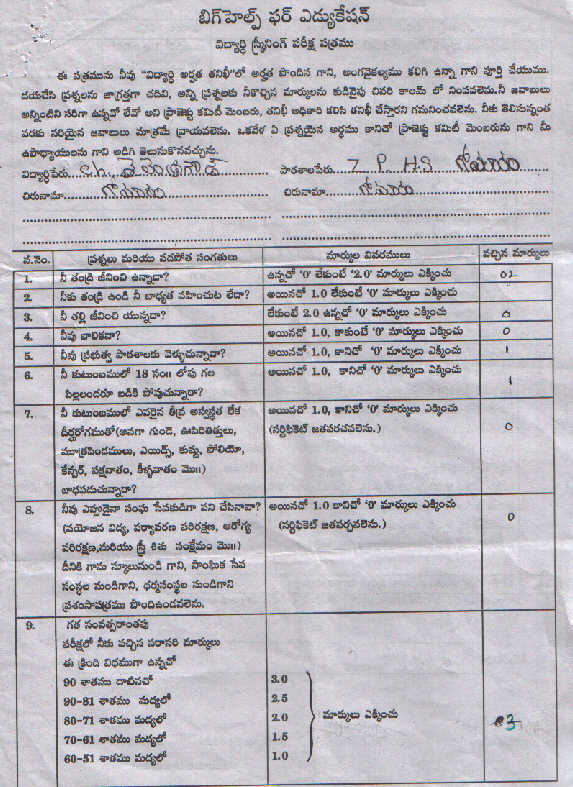 బిగ్‌హెల్ప్ ఫర్ ఎడ్యుకేషన్
విద్యార్థి స్క్రీనింగ్ పరీక్ష పత్రము
ఈ పత్రమును నీవు "విద్యార్థి అర్హత తనిఖీ"లో అర్హత పొందిన గాని, అంగవైకల్యము కలిగి ఉన్నా గాని పూర్తి చేయుము.
దయచేసి ప్రశ్నలను జాగ్రత్తగా చదివి, అన్ని ప్రశ్నలకు నీకొచ్చిన మార్కులను కుడివైపు చివరి కాలమ్ లో నింపవలెను.నీ జవాబులు
అన్నింటిని సరిగా ఉన్నవో లేవో అని ప్రాజెక్టు కమిటీ మెంబరు, తనిఖీ అధికారి కలిసి తనిఖీ చేస్తారని గమనించవలెను. నీకు తెలిసున్నంత
వరకు సరియైన జవాబులు మాత్రమే వ్రాయవలెను. ఒకవేళ ఏ ప్రశ్నయైన అర్థము కానిచో ప్రాజెక్టు కమిటీ మెంబరును గాని మీ
ఉపాధ్యాయులను గాని అడిగి తెలుసుకొనవచ్చును.
విద్యార్థిపేరు పాఠశాలపేరు Z P H S
చిరునామా చిరునామా
వ.నెం. ప్రశ్నలు మరియు వడపోత సంగతులు మార్కుల వివరములు వచ్చిన మార్కులు
1. నీ తండ్రి జీవించి ఉన్నాడా? ఉన్నచో '0' లేకుంటే '2.0' మార్కులు ఎక్కించు
2. నీకు తండ్రి ఉండి నీ బాధ్యత వహించుట లేదా? అయినచో 1.0 లేకుంటే '0' మార్కులు ఎక్కించు
3. నీ తల్లి జీవించి యున్నదా? లేకుంటే 2.0 ఉన్నచో '0' మార్కులు ఎక్కించు 0
4. నీవు బాలికవా? అయినచో 1.0, కాకుంటే '0' మార్కులు ఎక్కించు 0
5. నీవు ప్రభుత్వ పాఠశాలకు వెళ్ళుచున్నావా? అయినచో 1.0, కానిచో '0' మార్కులు ఎక్కించు 1
6. నీ కుటుంబములో 18 సం॥ లోపు గల అయినచో 1.0, కానిచో '0' మార్కులు ఎక్కించు
పిల్లలందరూ బడికి పోవుచున్నారా? 1
7. నీ కుటుంబములో ఎవరైన తీవ్ర అస్వస్థత లేక అయినచో 1.0, కానిచో '0' మార్కులు ఎక్కించు
దీర్ఘరోగముతో(అనగా గుండె, ఊపిరితిత్తులు, (సర్టిఫికెట్ జతపరచవలెను.) 0
మూత్రపిండములు, ఎయిడ్స్, కుష్ఠు, పోలియో,
కేన్సర్, పక్షవాతం, కీళ్ళవాతం మొ॥)
బాధపడుచున్నారా?
8. నీవు ఎప్పుడైనా సంఘ సేవకుడిగా పని చేసినావా? అయినచో 1.0 కానిచో '0' మార్కులు ఎక్కించు
(వయోజన విద్య, పర్యావరణ పరిరక్షణ, ఆరోగ్య (సర్టిఫికెట్ జతపర్చవలెను.) 0
పరిరక్షణ,మరియు స్త్రీ శిశు సంక్షేమం మొ॥)
దీనికి గాను స్కూలునుండి గాని, సాంఘిక సేవ
సంస్థల నుండిగాని, ధర్మసంస్థల నుండిగాని
ప్రశంసాపత్రము పొందిఉండవలెను.
9. గత సంవత్సరాంతపు
పరీక్షలో నీకు వచ్చిన సరాసరి మార్కులు
ఈ క్రింది విధముగా ఉన్నచో
90 శాతము దాటినచో 3.0
90-81 శాతము మధ్యలో 2.5
80-71 శాతము మధ్యలో 2.0 మార్కులు ఎక్కించు 3
70-61 శాతము మధ్యలో 1.5
60-51 శాతము మధ్యలో 1.0